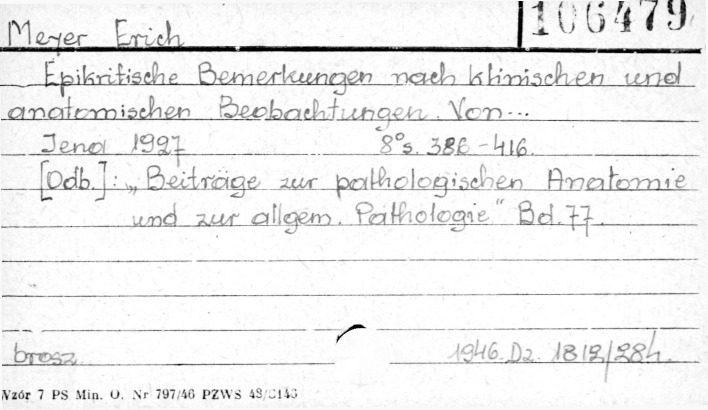 Meyer Erich
106479
Epikritische Bemerkungen nach klinischen und
anatomischen Beobachtungen. Von...
Jena 1927 8° s. 386-416.
[Odb.]: „Beiträge zur pathologischen Anatomie
und zur allgem. Pathologie" Bd. 77.
brosz. 1946. Dz. 1812/28h.
Wzór 7 PS Min. O. Nr 797/46 PZWS 48/